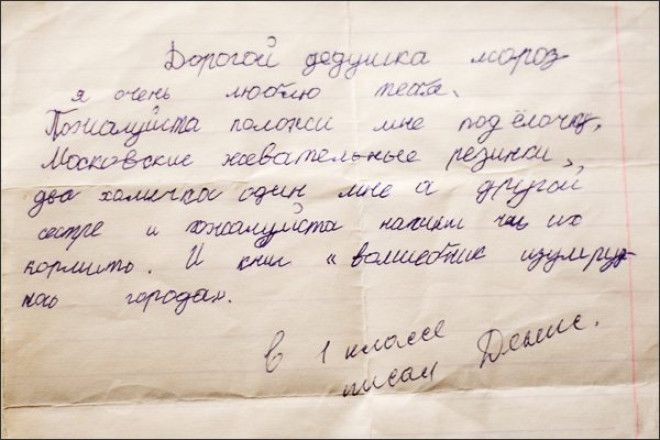 Дорогой дедушка мороз
я очень люблю тебя.
Пожалуйста положи мне под ёлочку,
Московские жевательные резинки,
два хомичка один мне а другой
сестре и пожалуйста напиши чем их
кормить. И книг « волшебник изумруд
ного города».
в 1 классе
писал Денис.